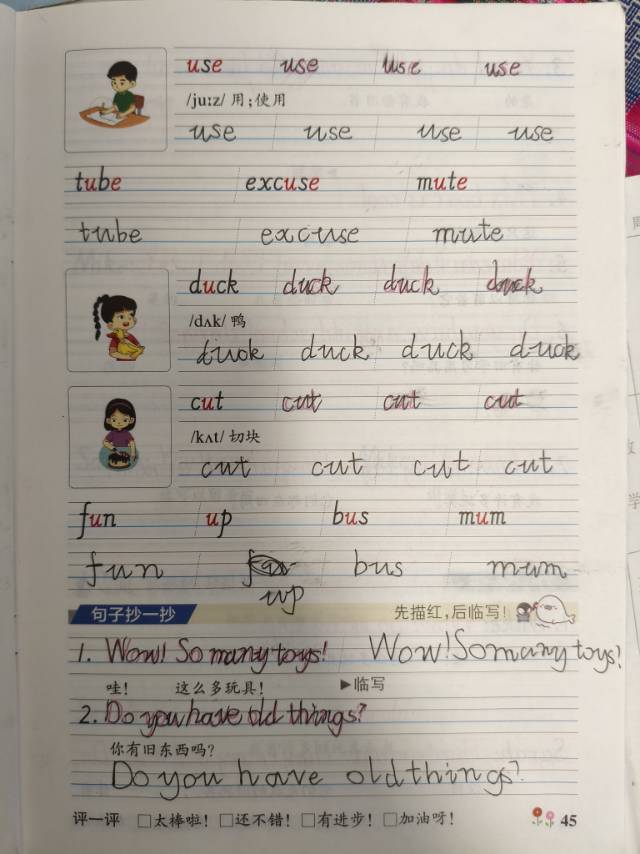 use use use use
/ju:z/ 用;使用
use use use use
tube excuse mute
tube excuse mute
duck duck duck duck
/dʌk/ 鸭
duck duck duck duck
cut cut cut cut
/kʌt/ 切块
cut cut cut cut
fun up bus mum
fun up bus mum
句子抄一抄 先描红,后临写!
1. Wow! So many toys! Wow! So many toys?
哇! 这么多玩具! ▶临写
2. Do you have old things?
你有旧东西吗?
Do you have old things?
评一评 □太棒啦! □还不错! □有进步! □加油呀! 45